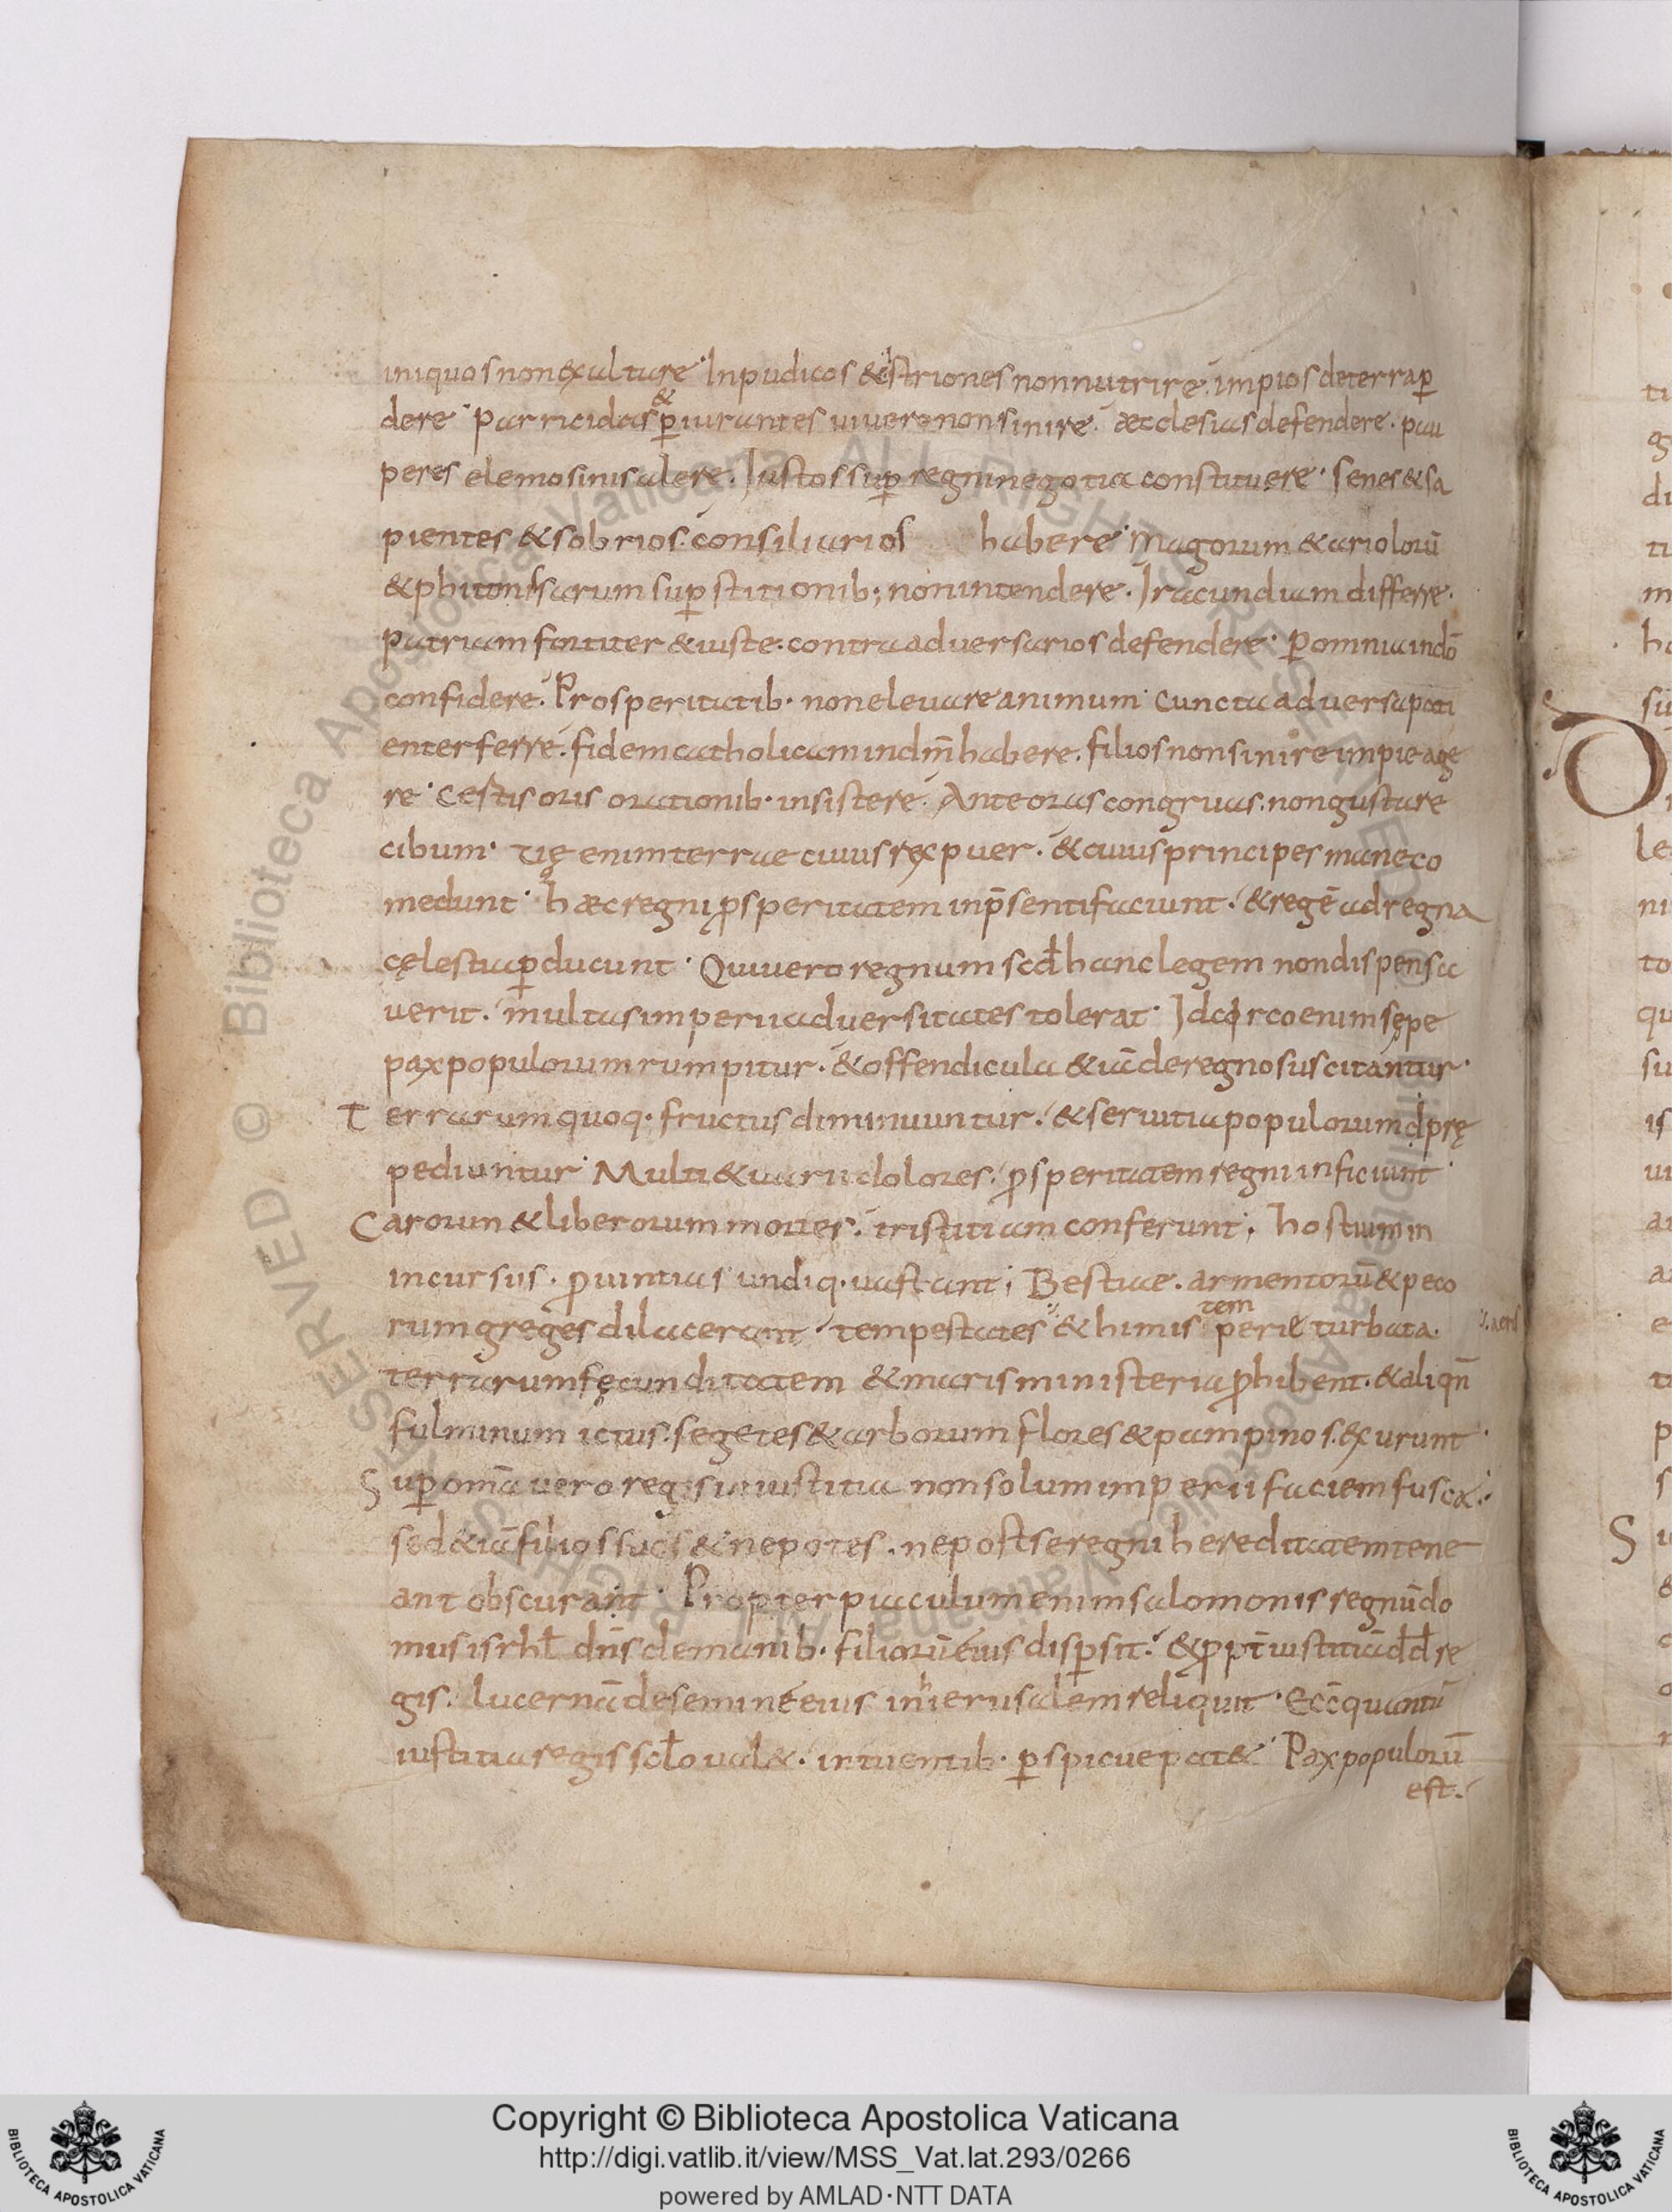 iniquos non exaltare · Inpudicos & istriones non nutrire . impios de terra p̲er
dere · Parricidas & p̲iurantes uiuere non sinire . æcclesias defendere . pau
peres elemosinis alere . Iustos sup̲ regni negotia constituere · Senes & sa
pientes & sobrios . consiliarios habere · Magorum & ariolorū
& phitonissarum sup̲stitionib; non intendere . Iracundiam differre .
Patriam fortiter & iuste . contra aduersarios defendere · P̲ omnia in dō
confidere . Prosperitatib· non eleuare animum · Cuncta aduersa pati
enter ferre . fidem catholicam in dm̄ habere . filios non sinire impie age
re · Certis oris orationib· insistere . Ante oras congruas . non gustare
cibum · Uę enim terrae cuius rex puer . & cuius principes mane co
medunt · hæc regni p̲speritatem in p̄senti faciunt . & regē ad regna
cęlestia p̲ducunt · Qui uero regnum scd̄ hanc legem non dispensa
uerit . multas imperii aduersitates tolerat · Idcirco enim sępe
pax populorum rumpitur . & offendicula & iā de regno suscitantur ·
Terrarum quoq· fructus diminuuntur . & seruitia populorum prę
pediuntur · Multi & uarii dolores . p̲speritatem regni inficiunt ·
Carorum & liberorum mortes . tristitiam conferunt ; hostium in
incursus . p̲uintias undiq· uastant ; Bestiae . armentorū & peco
rum greges dilacerant . tempestates & himis tem peries turbata .
terrarum fęcunditatem & maris ministeria p̲hibent . & aliqn̄
fulminum ictus . segetes & arborum flores & pampinos . exurunt ·
Sup̲ om̄a uero regis iniustitia non solum imperii faciem fusc& .
sed & iā filios suos & nepotes . ne post se regni hereditatem tene
ant obscurant · Propter piaculum enim salomonis regnū do
mus isrhł dn̄s de manib· filiorū eius disp̲sit . & p̲pt̄ iustitiā dd̄ re
gis . lucernā de semine eius in hierusalem reliquit · Ecc̄ quantū
iustitia regis scł̄o ual& . intuentib· p̲spicue pat& · Pax populorū
est .
Copyright © Biblioteca Apostolica Vaticana
http://digi.vatlib.it/view/MSS_Vat.lat.293/0266
powered by AMLAD·NTT DATA